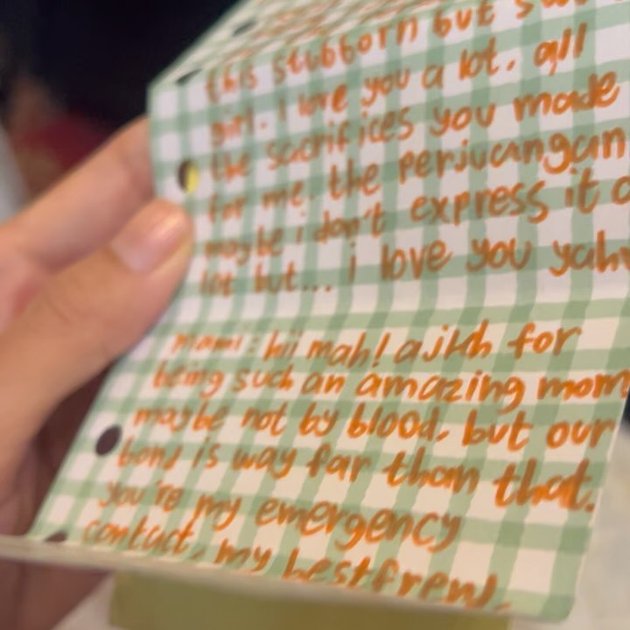 this stubborn but
girl. I love you a lot. all
the sacrifices you made
for me. the perjuangan
maybe i don't express it a
lot but... i love you
Mami : hii mah! for
being such an amazing mom
maybe not by blood, but our
bond is way far than that.
you're my emergency
contact, my bestfren.